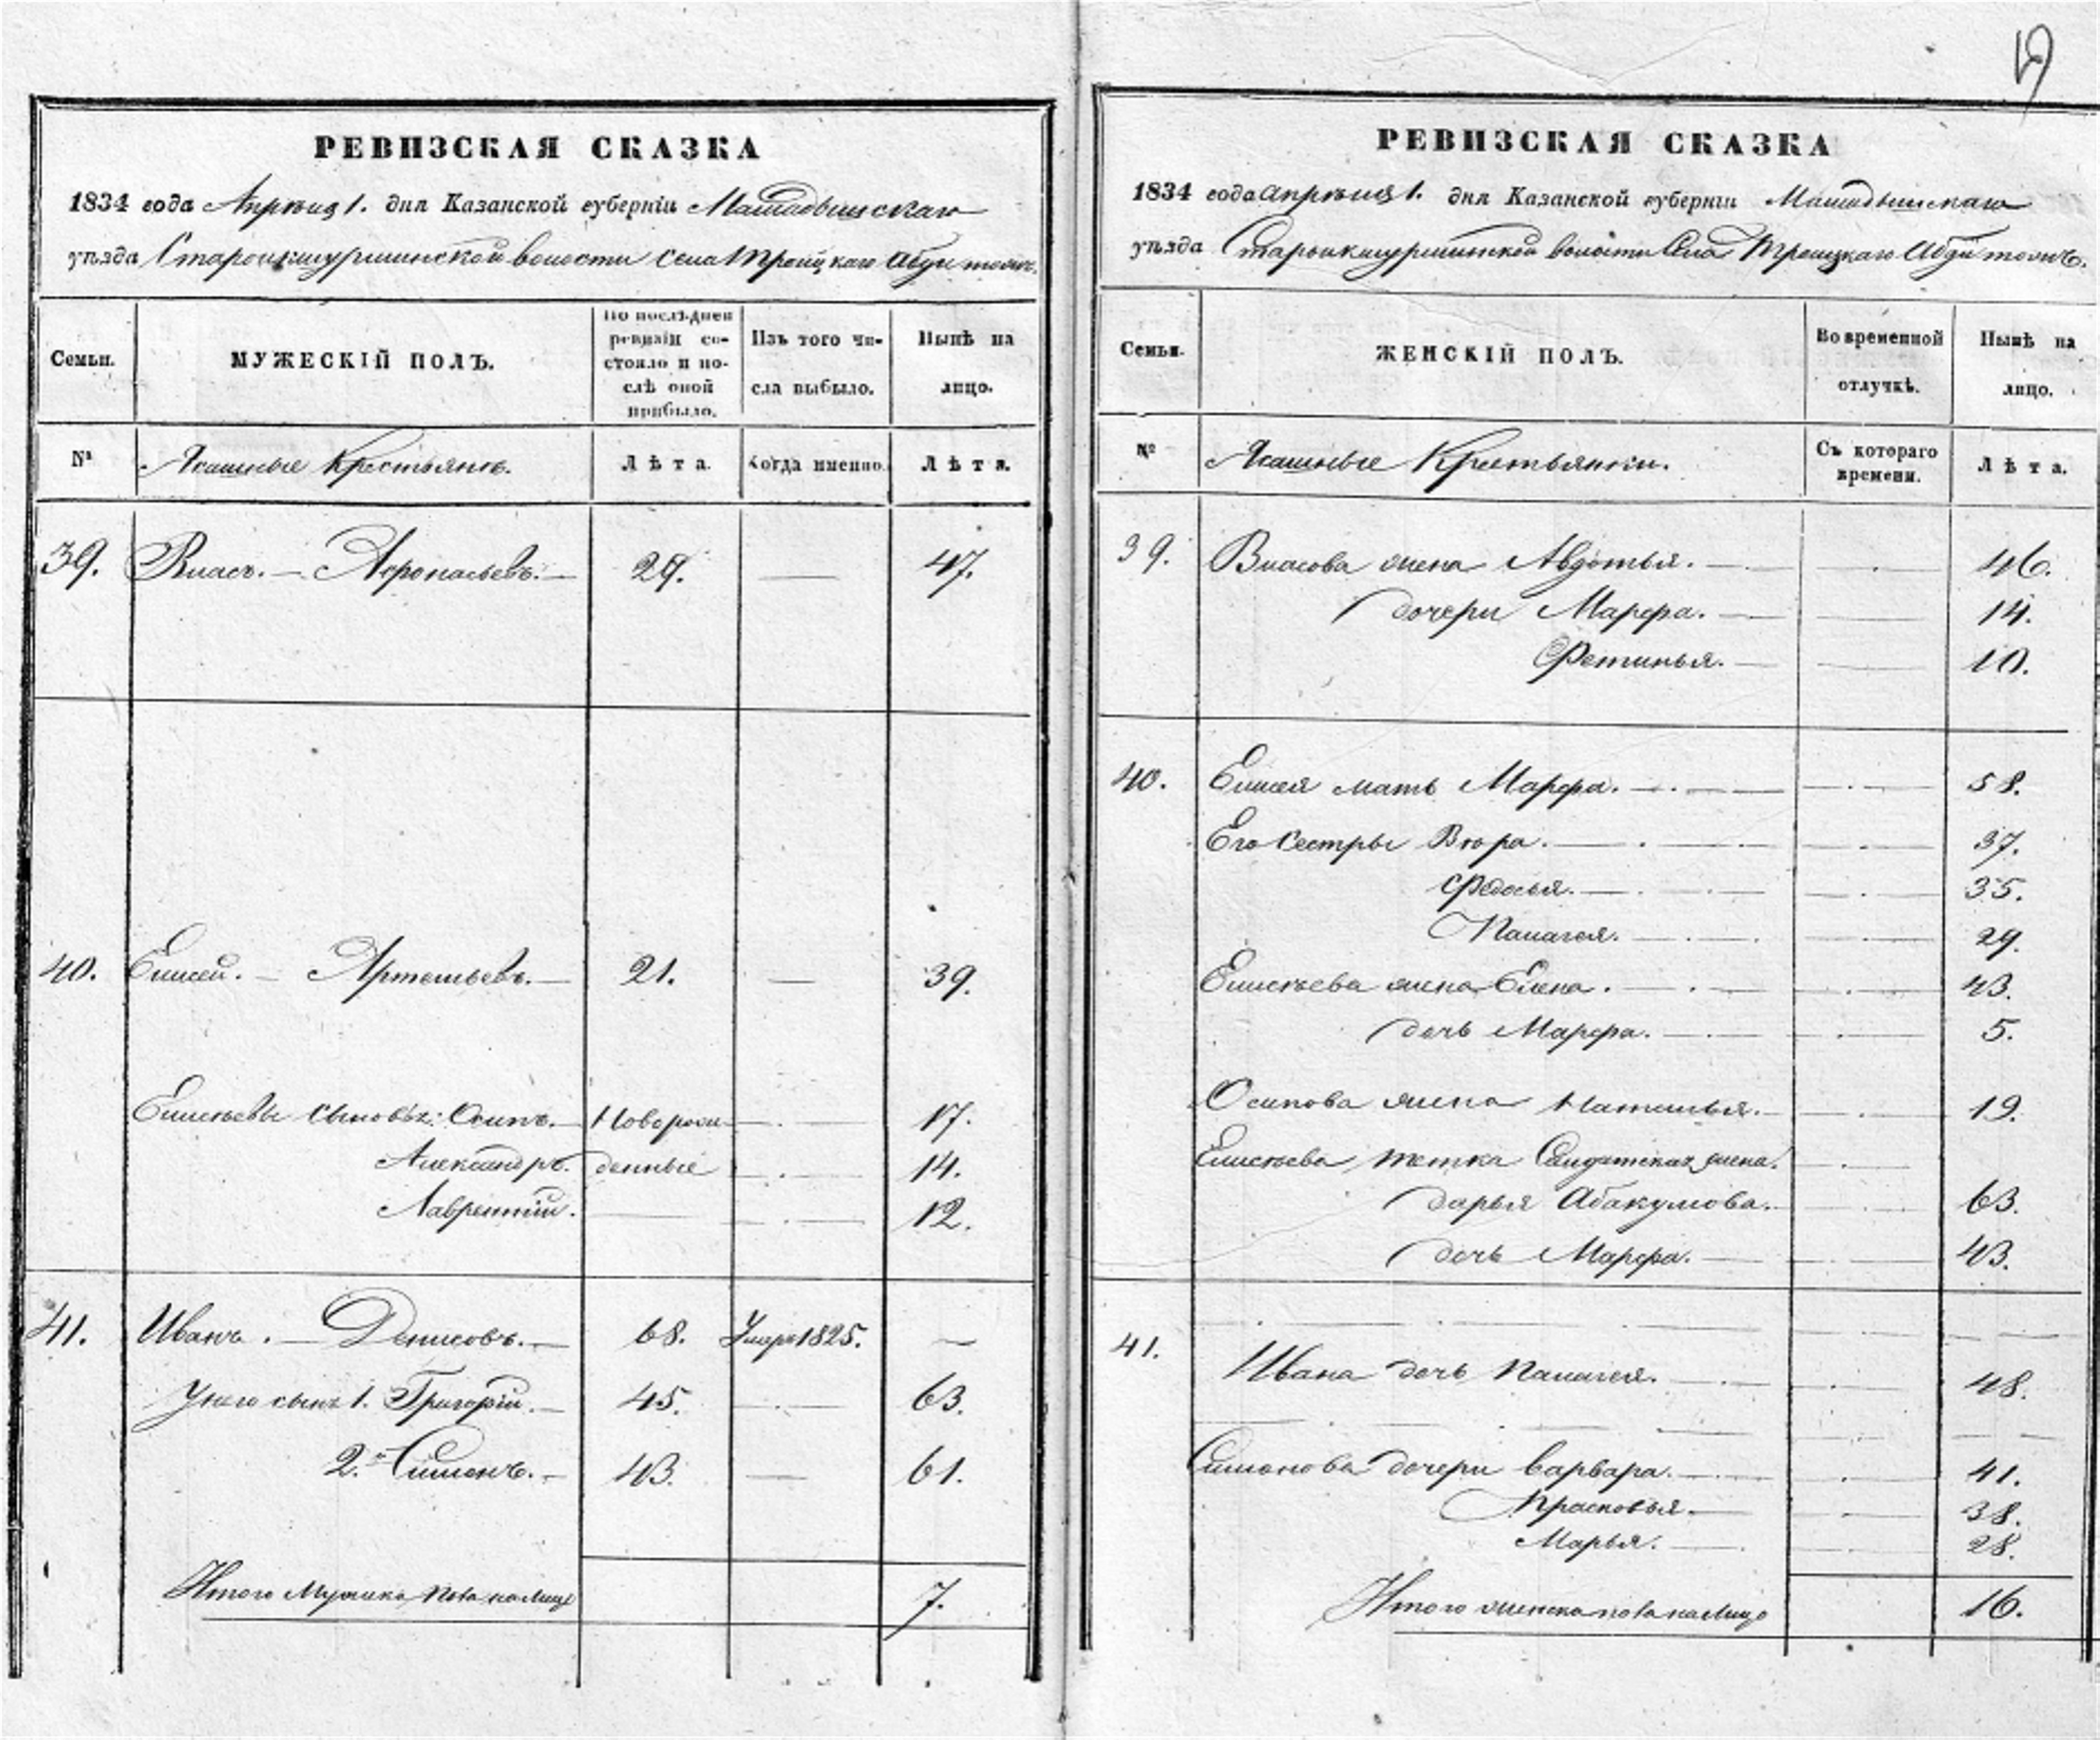 19
РЕВИЗСКАЯ СКАЗКА
1834 года Апрѣля 1. дня Казанской губерніи Мамадышскаго
уѣзда Старокишурминской волости села Троицкаго
Семьи.
МУЖЕСКІЙ ПОЛЪ.
По послѣдней ревизіи состояло и послѣ оной прибыло.
Изъ того числа выбыло.
Нынѣ на лицо.
№
Ясашные Крестьяне.
Лѣта.
Когда именно.
Лѣта.
39. Власъ. — Афонасьевъ. — 29. — 47.
40. Елисей. — Артемьевъ. — 21. — 39.
Елисѣевы сыновья: Осипъ. — Новорож- — 17.
Александръ. денные — 14.
Лаврентій. — — 12.
41. Иванъ. — Денисовъ. — 68. Умре 1825. —
У него сынъ 1. Григорій. — 45. — 63.
2. Симонъ. — 43. — 61.
Итого Мужска пола на лицо 7.
РЕВИЗСКАЯ СКАЗКА
1834 года апрѣля 1. дня Казанской губерніи Мамадышскаго
уѣзда Старокишурминской волости Села Троицкаго
Семьи.
ЖЕНСКІЙ ПОЛЪ.
Во временной отлучкѣ.
Нынѣ на лицо.
№
Ясашные Крестьянки.
Съ котораго времени.
Лѣта.
39. Власова жена Авдотья. — — 46.
дочери Марфа. — — 14.
Фетинья. — — 10.
40. Елисея мать Марфа. — — 58.
Его Сестры Вѣра. — — 37.
Федосья. — — 35.
Палагея. — — 29.
Елисѣева жена Елена. — — 43.
дочь Марфа. — — 5.
Осипова жена Наталья. — — 19.
Елисѣева тетка Салдатская жена. —
дарья Абакумова. — — 63.
дочь Марфа. — — 43.
41. Ивана дочь Палагея. — — 48.
Симонова дочери варвара. — — 41.
Прасковья. — — 38.
Марья. — — 28.
Итого женска пола на Лицо 16.